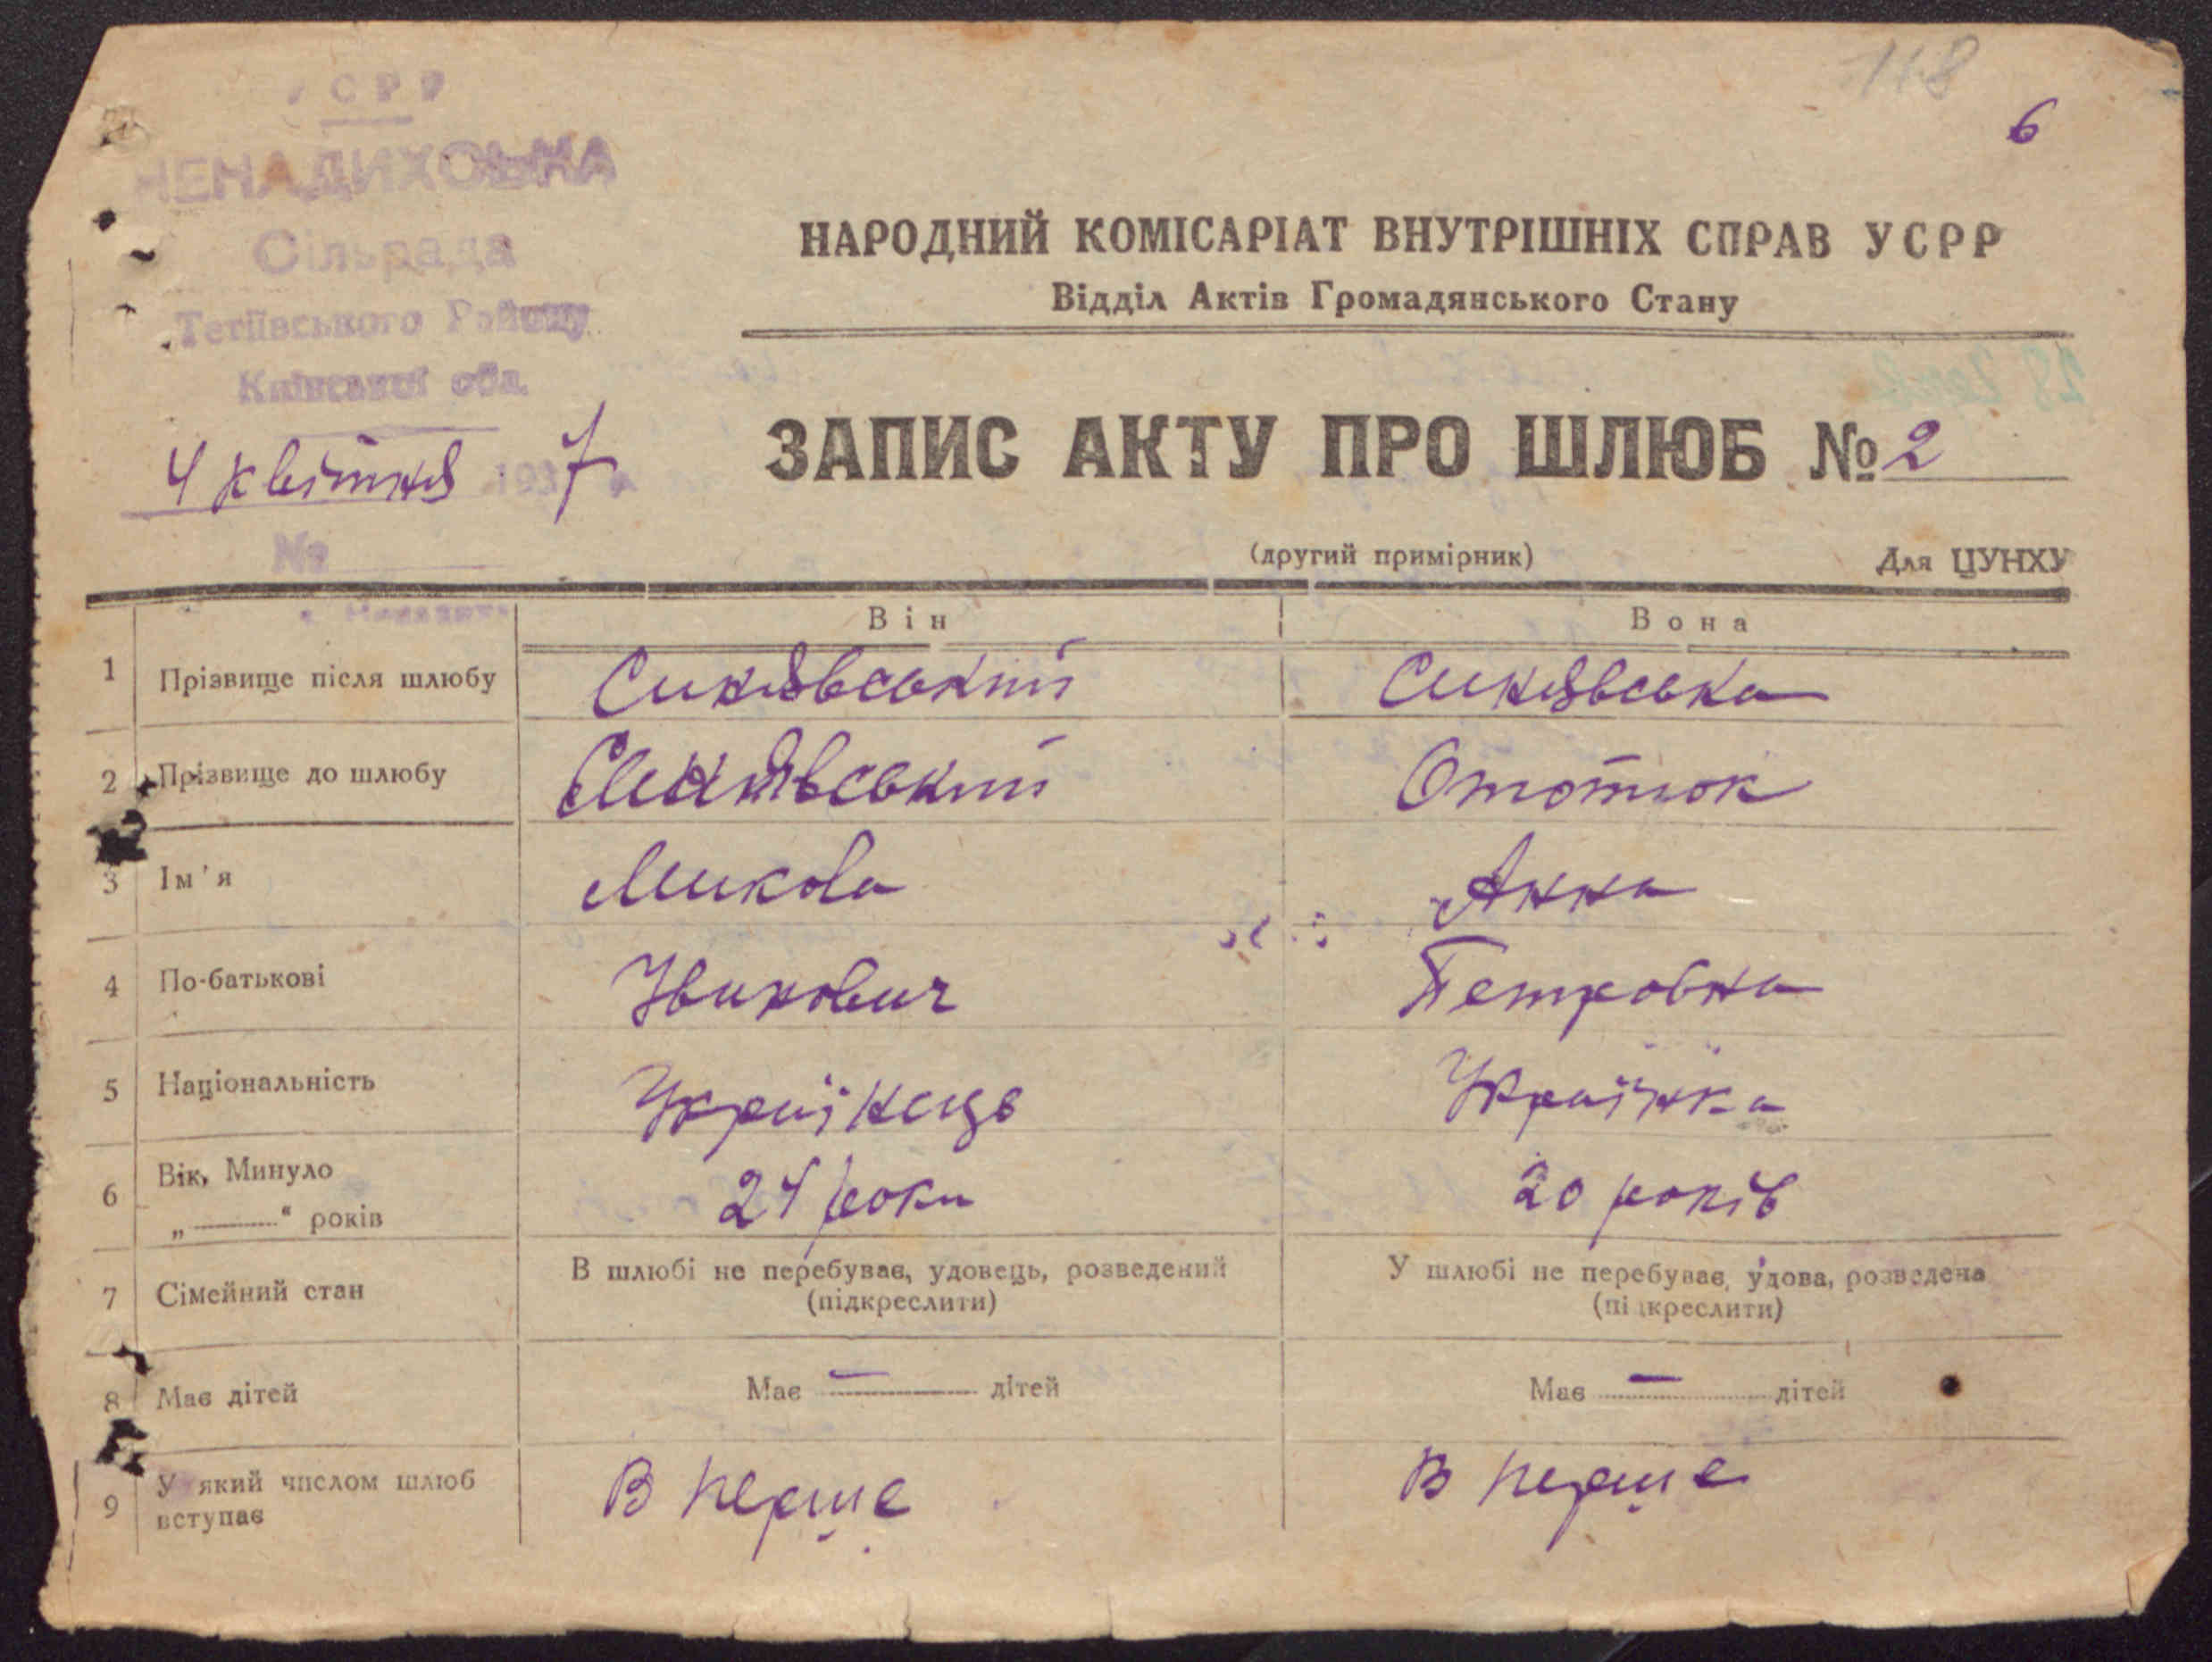 УСРР
118
6
НЕНАДИХОВСЬКА
Сільрада
Тетіївського Району
Київської обл.
4 квітня 1937
№
НАРОДНИЙ КОМІСАРІАТ ВНУТРІШНІХ СПРАВ УСРР
Відділ Актів Громадянського Стану
ЗАПИС АКТУ ПРО ШЛЮБ № 2
(другий примірник)
Для ЦУНХУ
Він Вона
1 Прізвище після шлюбу Синявський Синявська
2 Прізвище до шлюбу Синявський
3 Ім'я Микола Анна
4 По-батькові Іванович Петровна
5 Національність Українець Українка
6 Вік, Минуло 24 роки 20 років
„ “ років
7 Сімейний стан В шлюбі не перебував, удовець, розведений У шлюбі не перебував, удова, розведена
(підкреслити) (підкреслити)
8 Має дітей Має — дітей Має — дітей
9 У який числом шлюб В перше В перше
вступає